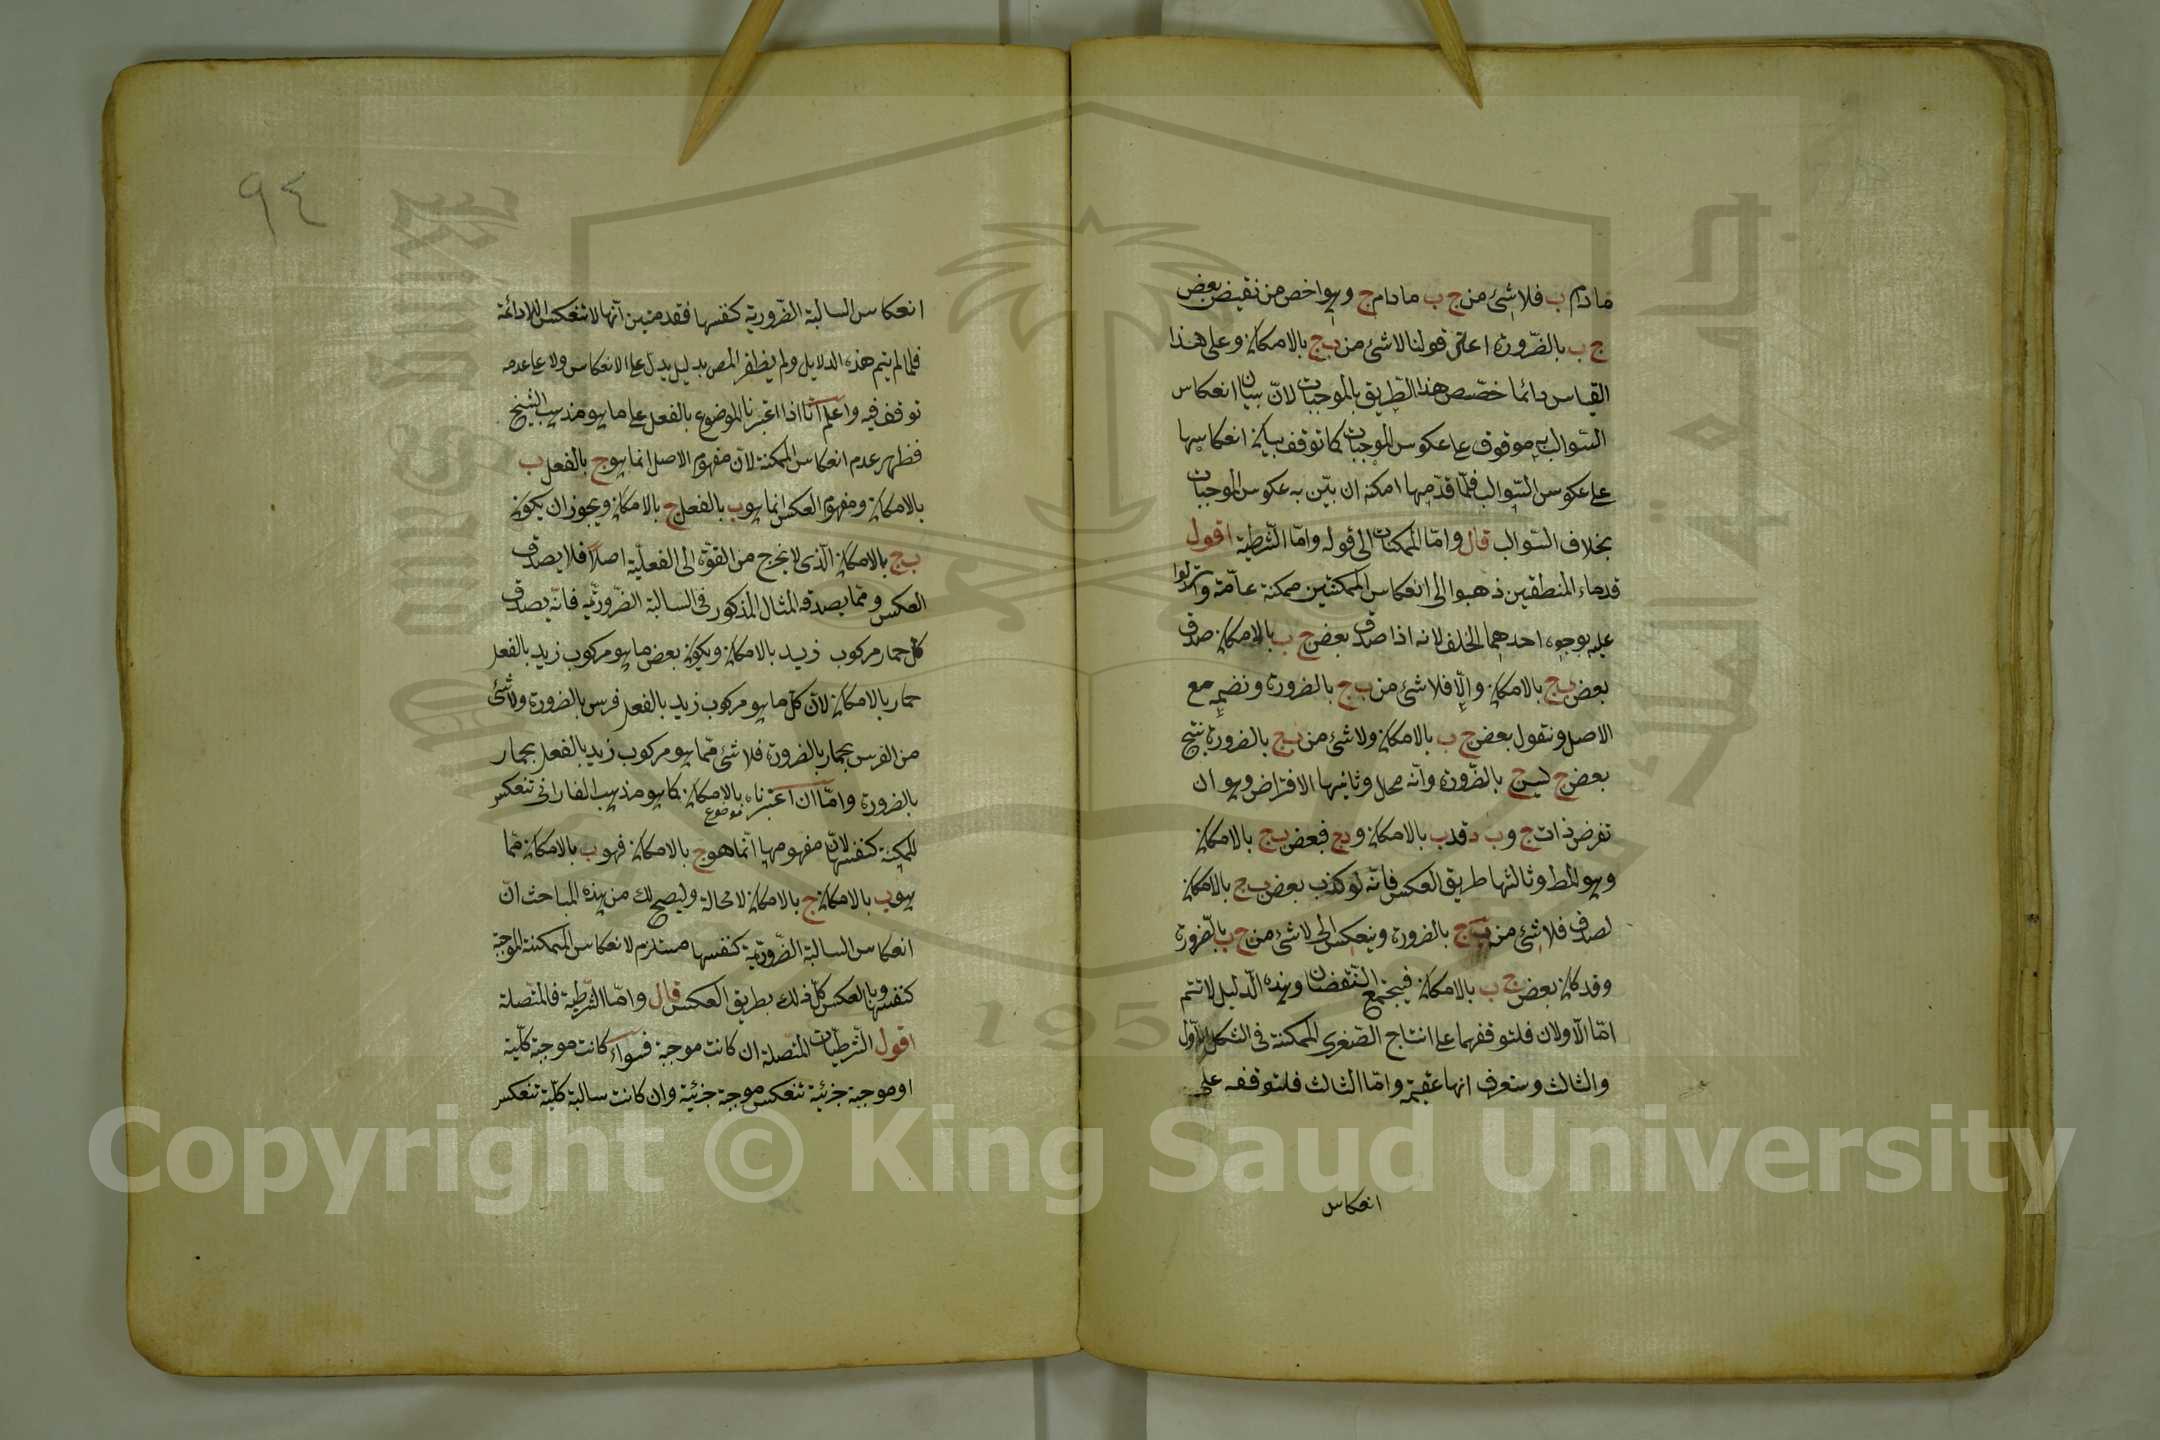 مادام ب فلا شئ من ج ب مادام ج وهو اخص من نقيض بعض
ج ب بالضرورة اعنى قولنا لا شئ من ب ج بالامكان وعلى هذا
القياس دائما خصص هذا الطريق بالموجبات لان بيان انعكاس
السوالب به موقوف على عكوس الموجبات كما توقف بيان انعكاسها
على عكوس السوالب فلما قدمها امكنه ان يبين به عكوس الموجبات
بخلاف السوالب قال واما الممكنتان الى قوله واما الشرطية اقول
قدماء المنطقيين ذهبوا الى انعكاس الممكنتين ممكنة عامة واستدلوا
عليه بوجوه احدهما الخلف لانه اذا صدق بعض ج ب بالامكان صدق
بعض ب ج بالامكان والا فلا شئ من ب ج بالضرورة ونضمه مع
الاصل ونقول بعض ج ب بالامكان ولا شئ من ب ج بالضرورة ينتج
بعض ج ليس ج بالضرورة وانه محال وثانيها الافتراض وهو ان
نفرض ذات ج وب د فد ب بالامكان و د ج فبعض ب ج بالامكان
وهو المط وثالثها طريق العكس فانه لو كذب بعض ب ج بالامكان
لصدق فلا شئ من ب ج بالضرورة وينعكس الى لا شئ من ج ب بالضرورة
وقد كان بعض ج ب بالامكان فيجتمع النقيضان وهذه الدليل لا تتم
اما الاولان فلتوقفهما على انتاج الصغرى الممكنة فى الشكل الاول
والثالث وستعرف انها عقيمة واما الثالث فلتوقفه على
انعكاس
٩٤
انعكاس السالبة الضرورية كنفسها فقد تبين انها لا تنعكس الا دائمة
فلما لم يتم هذه الدلايل ولم يظفر المص بدليل يدل على الانعكاس ولا على عدمه
توقف فيه واعلم انا اذا اعتبرنا الموضوع بالفعل على ما هو مذهب الشيخ
فظهر عدم انعكاس الممكنة لان مفهوم الاصل انما هو ج بالفعل ب
بالامكان ومفهوم العكس انما هو ب بالفعل ج بالامكان ويجوز ان يكون
ب ج بالامكان الذى لا يخرج من القوة الى الفعلية اصلا فلا يصدق
العكس ومما يصدقه المثال المذكور فى السالبة الضرورية فانه يصدق
كل حمار مركوب زيد بالامكان ويكون بعض ما هو مركوب زيد بالفعل
حمار بالامكان لان كل ما هو مركوب زيد بالفعل فرس بالضرورة ولا شئ
من الفرس بحمار بالضرورة فلا شئ مما هو مركوب زيد بالفعل بحمار
بالضرورة واما ان اعتبرناه بالامكان كما هو مذهب الفارابى تنعكس
موضوع
الممكنة كنفسها لان مفهومها انما هو ج بالامكان فهو ب بالامكان فما
هو ب بالامكان ج بالامكان لا محالة وليصح لك من هذه المباحث ان
انعكاس السالبة الضرورية كنفسها مستلزم لانعكاس الممكنة الموجبة
كنفسها وبالعكس كل ذلك بطريق العكس قال واما الشرطية فالمتصلة
اقول الشرطيات المتصلة ان كانت موجبة فسواء كانت موجبة كلية
او موجبة جزئية تنعكس موجبة جزئية وان كانت سالبة كلية تنعكس
1957
Copyright © King Saud University